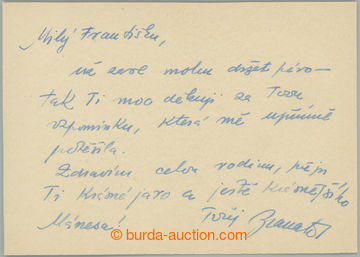 Milý Františku,
už zase mohu držet péro –
tak Ti moc děkuji za Tvou
vzpomínku, která mě upřímně
potěšila.
Zdravím celou rodinu, přeji
Ti krásné jaro a ještě krásnějšího
Mánesa! Tvůj
burda-auction.com